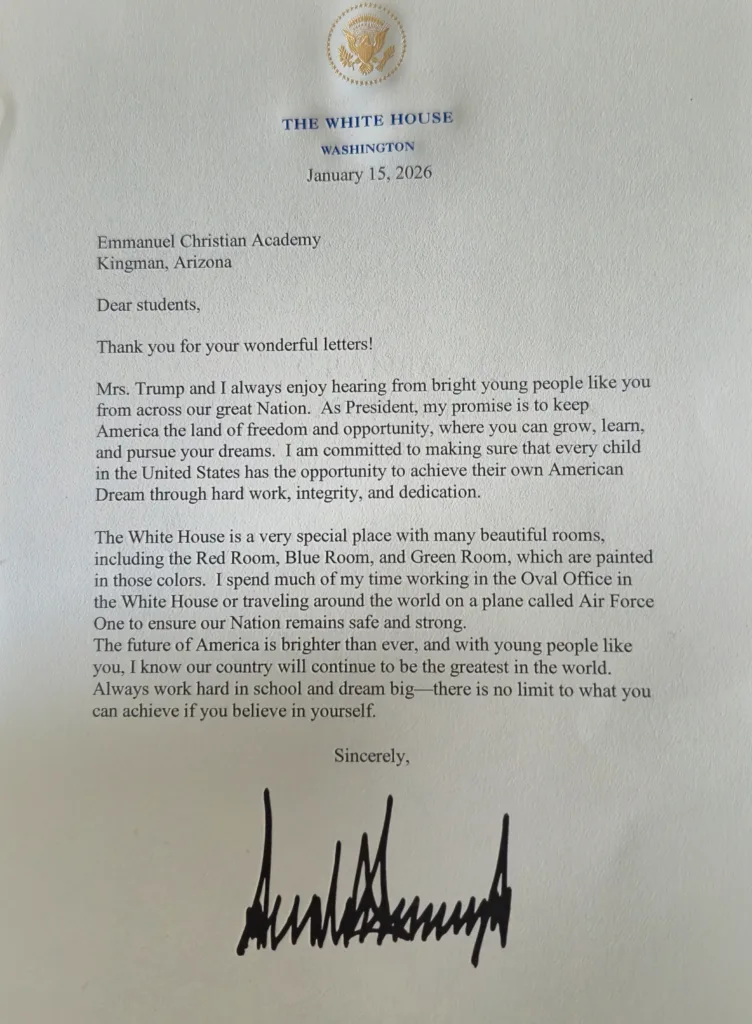 THE WHITE HOUSE
WASHINGTON
January 15, 2026
Emmanuel Christian Academy
Kingman, Arizona
Dear students,
Thank you for your wonderful letters!
Mrs. Trump and I always enjoy hearing from bright young people like you
from across our great Nation.  As President, my promise is to keep
America the land of freedom and opportunity, where you can grow, learn,
and pursue your dreams.  I am committed to making sure that every child
in the United States has the opportunity to achieve their own American
Dream through hard work, integrity, and dedication.
The White House is a very special place with many beautiful rooms,
including the Red Room, Blue Room, and Green Room, which are painted
in those colors.  I spend much of my time working in the Oval Office in
the White House or traveling around the world on a plane called Air Force
One to ensure our Nation remains safe and strong.
The future of America is brighter than ever, and with young people like
you, I know our country will continue to be the greatest in the world.
Always work hard in school and dream big—there is no limit to what you
can achieve if you believe in yourself.
Sincerely,